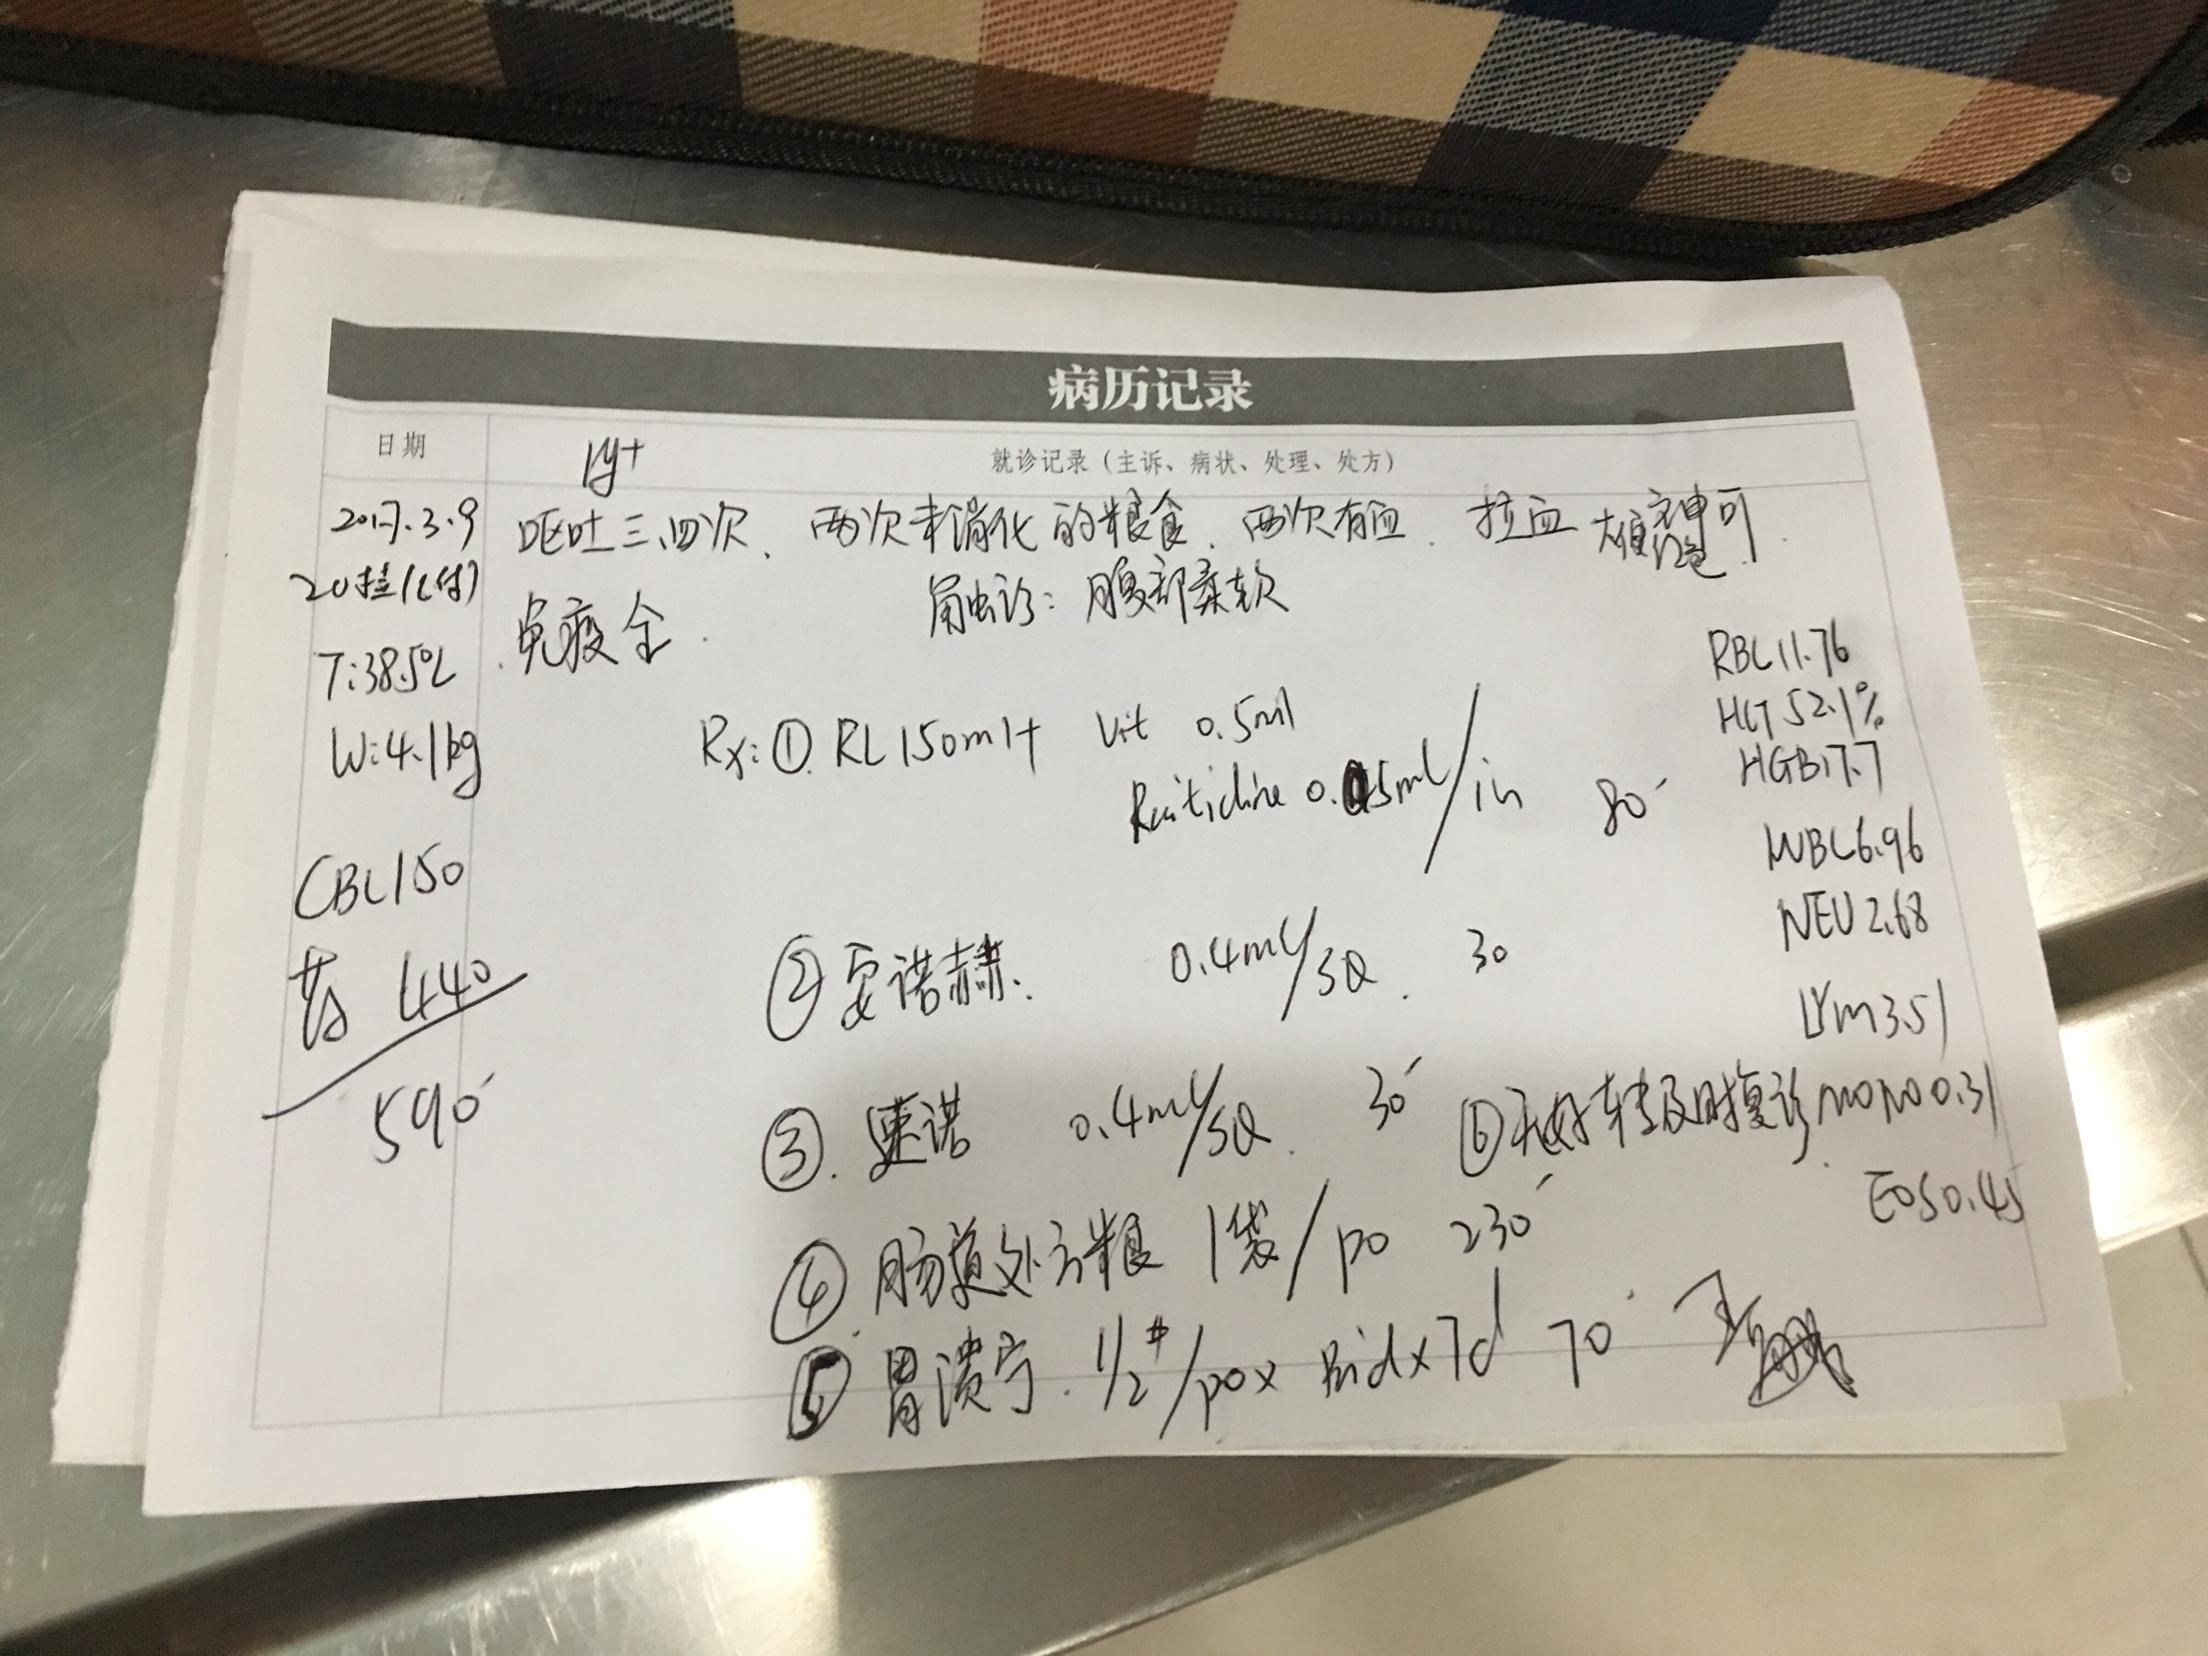 病历记录
日期
1y+
就诊记录（主诉、病状、处理、处方）
2017.3.9
呕吐三、四次、两次未消化的粮食、两次有血、拉血 精神可
20挂（已付）
免疫全. 触诊：腹部柔软
T:38.5℃
W:4.1kg
Rx:①. RL 150ml+ Vit 0.5ml
Ranitidine 0.5ml/iv 80
RBC 11.76
HCT 52.1%
HGB 17.7
WBC 6.96
NEU 2.68
LYM 3.51
MONO 0.31
EOS 0.45
CBC 150
药 440
590
② 安诺赫. 0.4ml/SQ. 30
③. 速诺 0.4ml/SQ. 30
⑥ 无好转及时复诊.
④ 肠道处方粮 1袋/po 230
⑤ 胃溃宁. 1/2#/po x Bid x 7d 70